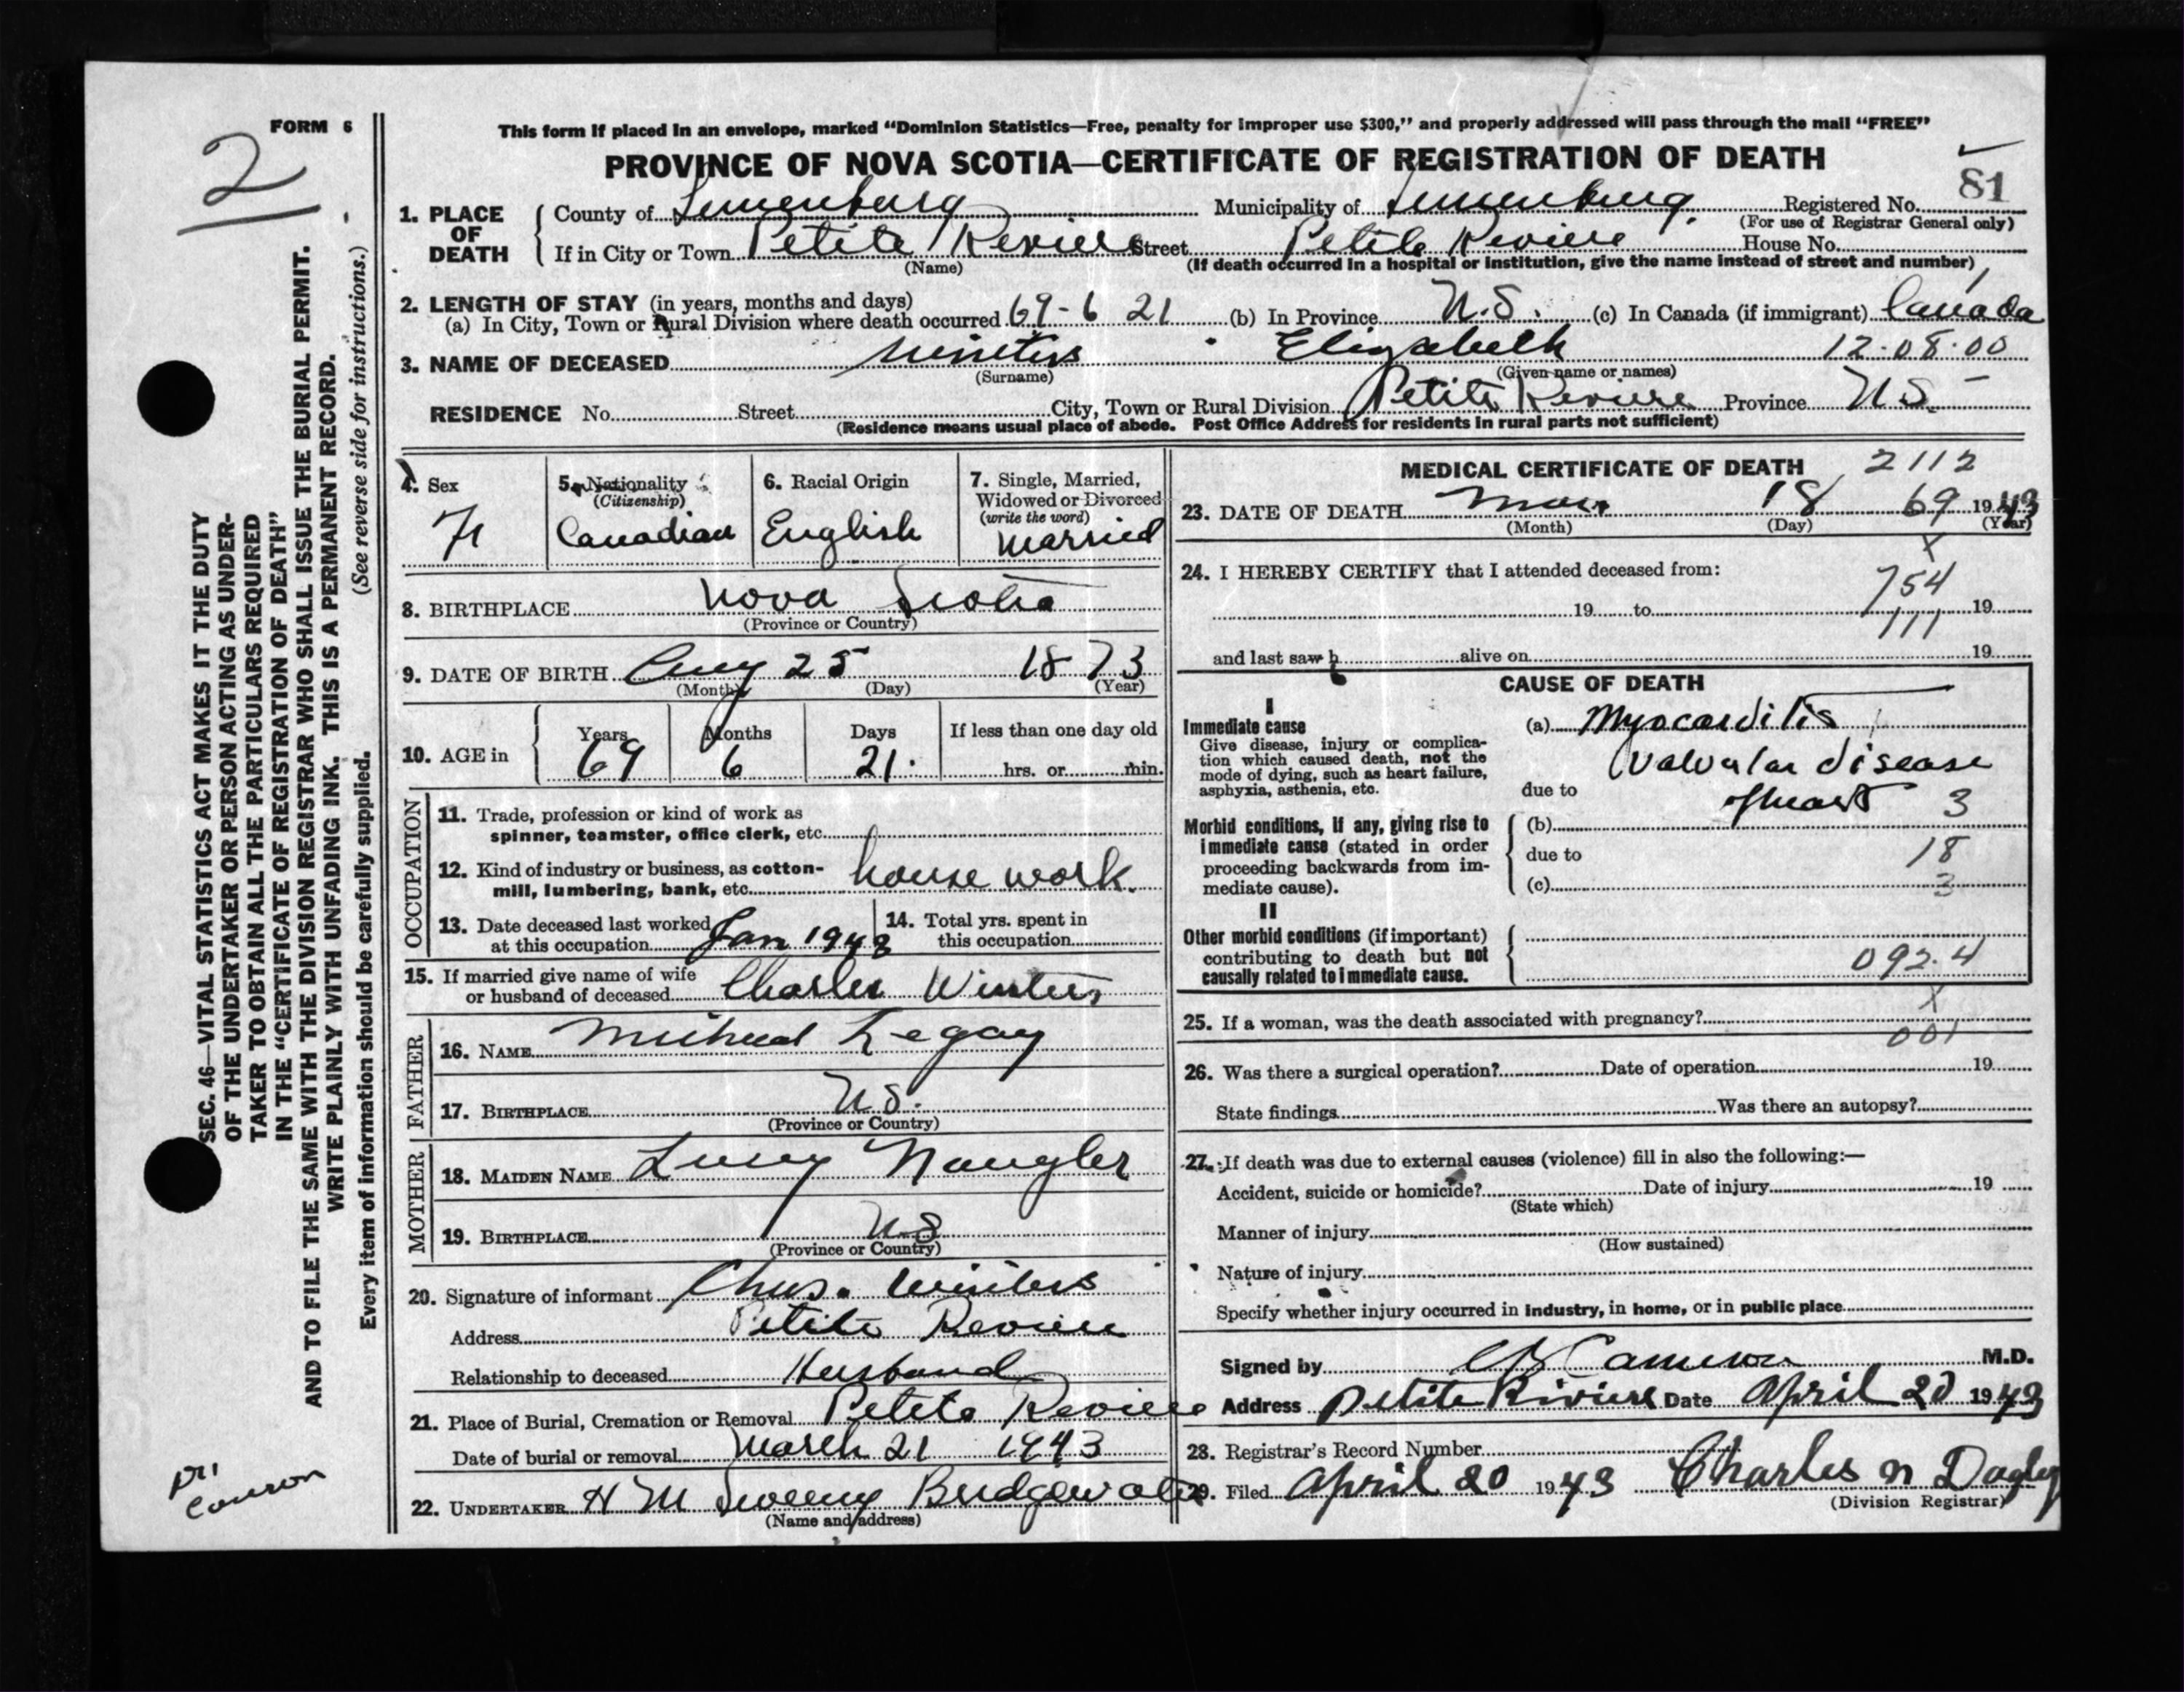 FORM 6
2
This form if placed in an envelope, marked “Dominion Statistics—Free, penalty for improper use $300,” and properly addressed will pass through the mail “FREE”
PROVINCE OF NOVA SCOTIA—CERTIFICATE OF REGISTRATION OF DEATH
81
1. PLACE OF DEATH
County of Lunenburg Municipality of Lunenburg Registered No.
(For use of Registrar General only)
If in City or Town Petite Reviere Street Petite Reviere House No.
(Name) (If death occurred in a hospital or institution, give the name instead of street and number)
2. LENGTH OF STAY (in years, months and days)
(a) In City, Town or Rural Division where death occurred 69-6 21 (b) In Province N.S. (c) In Canada (if immigrant) Canada
3. NAME OF DECEASED Winters Elizabeth 12.08.00
(Surname) (Given name or names)
RESIDENCE No. Street City, Town or Rural Division Petite Reviere Province NS.
(Residence means usual place of abode. Post Office Address for residents in rural parts not sufficient)
4. Sex
F
5. Nationality
(Citizenship)
Canadian
6. Racial Origin
English
7. Single, Married,
Widowed or Divorced
(write the word)
Married
8. BIRTHPLACE Nova Scotia
(Province or Country)
9. DATE OF BIRTH Aug 25 1873
(Month) (Day) (Year)
10. AGE in
Years Months Days If less than one day old
69 6 21. hrs. or min.
OCCUPATION
11. Trade, profession or kind of work as
spinner, teamster, office clerk, etc.
12. Kind of industry or business, as cotton-
mill, lumbering, bank, etc. house work.
13. Date deceased last worked
at this occupation Jan 1943
14. Total yrs. spent in
this occupation
15. If married give name of wife
or husband of deceased Charles Winters
FATHER
16. NAME Micheal Legay
17. BIRTHPLACE N.S.
(Province or Country)
MOTHER
18. MAIDEN NAME Lucy Naugler
19. BIRTHPLACE N.S
(Province or Country)
20. Signature of informant Chas. Winters
Address Petite Reviere
Relationship to deceased Husband
21. Place of Burial, Cremation or Removal Petite Reviere
Date of burial or removal March 21 1943
22. UNDERTAKER H M Sweeny Bridgewater
(Name and address)
MEDICAL CERTIFICATE OF DEATH 2112
23. DATE OF DEATH Mar 18 69 1943
(Month) (Day) (Year)
X
24. I HEREBY CERTIFY that I attended deceased from:
754
19 to 19
111
and last saw h alive on 19
CAUSE OF DEATH
I
Immediate cause
Give disease, injury or complica-
tion which caused death, not the
mode of dying, such as heart failure,
asphyxia, asthenia, etc.
(a) Myocarditis
Valvular disease
due to of heart 3
Morbid conditions, if any, giving rise to
immediate cause (stated in order
proceeding backwards from im-
mediate cause).
(b)
due to 18
(c) 3
II
Other morbid conditions (if important)
contributing to death but not
causally related to immediate cause.
092.4
X
25. If a woman, was the death associated with pregnancy?
001
26. Was there a surgical operation? Date of operation 19
State findings Was there an autopsy?
27. If death was due to external causes (violence) fill in also the following:—
Accident, suicide or homicide? Date of injury 19
(State which)
Manner of injury
(How sustained)
Nature of injury
Specify whether injury occurred in industry, in home, or in public place
Signed by Cameron M.D.
Address Petite Riviere Date April 20 1943
28. Registrar’s Record Number
29. Filed April 20 1943 Charles N Dagley
(Division Registrar)
SEC. 46—VITAL STATISTICS ACT MAKES IT THE DUTY
OF THE UNDERTAKER OR PERSON ACTING AS UNDER-
TAKER TO OBTAIN ALL THE PARTICULARS REQUIRED
IN THE “CERTIFICATE OF REGISTRATION OF DEATH”
AND TO FILE THE SAME WITH THE DIVISION REGISTRAR WHO SHALL ISSUE THE BURIAL PERMIT.
WRITE PLAINLY WITH UNFADING INK. THIS IS A PERMANENT RECORD.
(See reverse side for instructions.)
Every item of information should be carefully supplied.